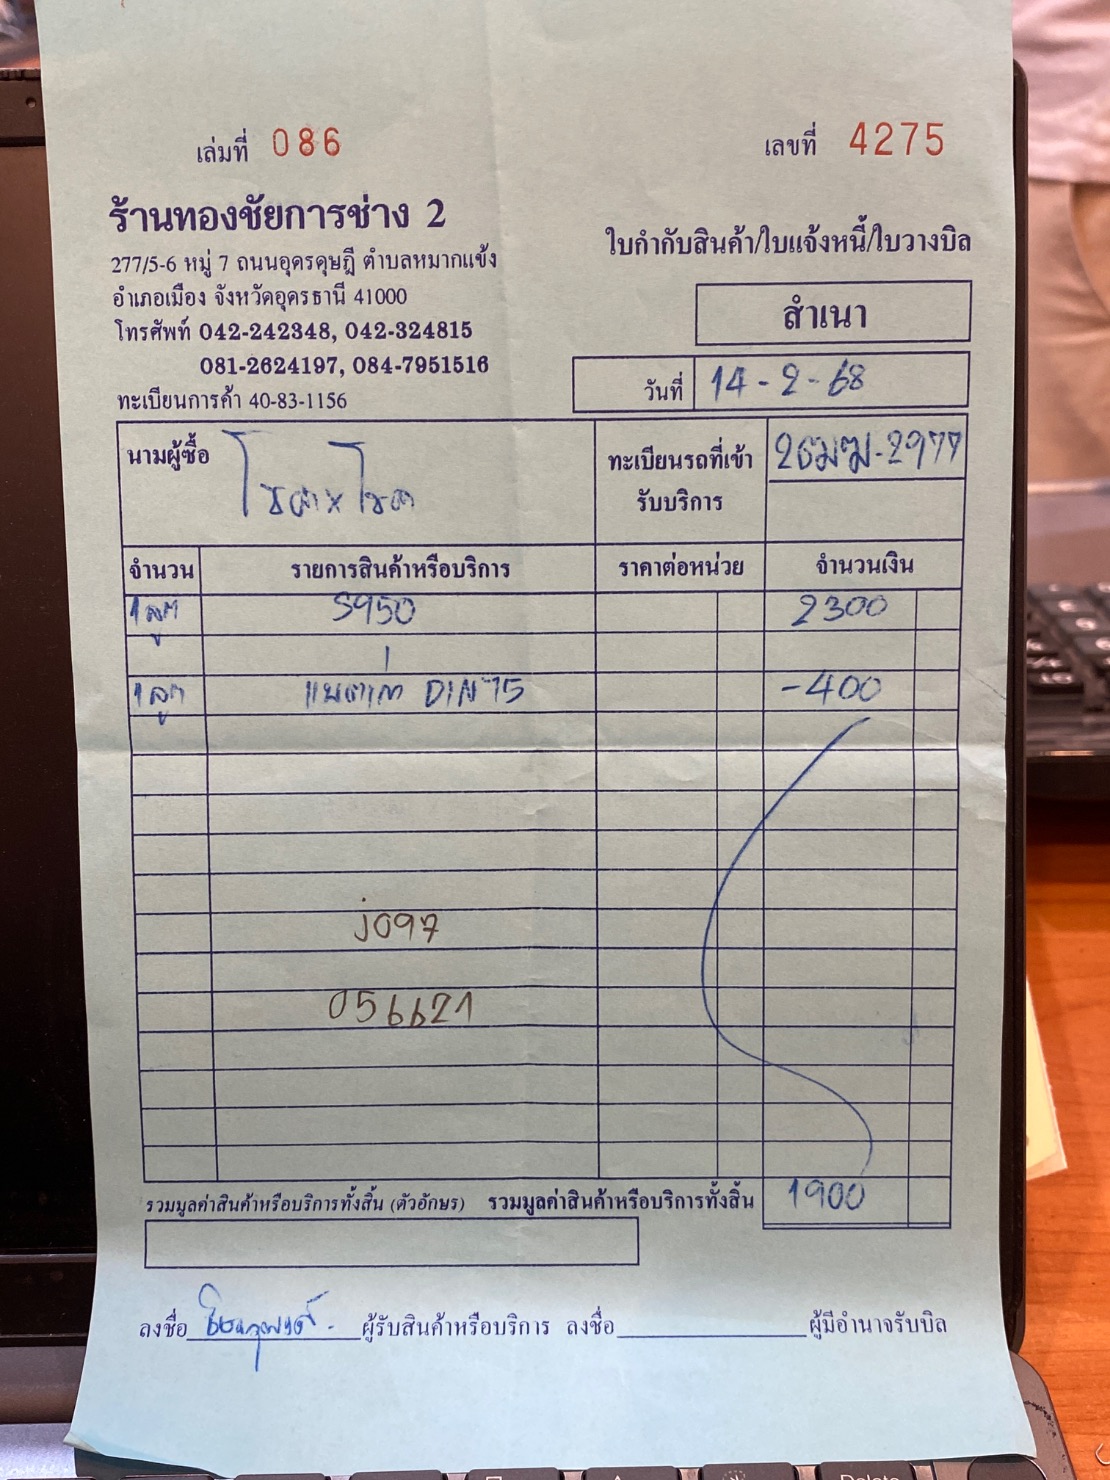 เล่มที่ 086
เลขที่ 4275
ร้านทองชัยการช่าง 2
277/5-6 หมู่ 7 ถนนอุดรดุษฎี ตำบลหมากแข้ง
อำเภอเมือง จังหวัดอุดรธานี 41000
โทรศัพท์ 042-242348, 042-324815
081-2624197, 084-7951516
ทะเบียนการค้า 40-83-1156
ใบกำกับสินค้า/ใบแจ้งหนี้/ใบวางบิล
สำเนา
วันที่ 14-2-68
นามผู้ซื้อ
ทะเบียนรถที่เข้า
รับบริการ
จำนวน รายการสินค้าหรือบริการ ราคาต่อหน่วย จำนวนเงิน
1 ลูก S950 2300
1 ลูก แบตเก่า DIN 75 -400
j097
056621
รวมมูลค่าสินค้าหรือบริการทั้งสิ้น (ตัวอักษร) รวมมูลค่าสินค้าหรือบริการทั้งสิ้น 1900
ลงชื่อ ผู้รับสินค้าหรือบริการ ลงชื่อ ผู้มีอำนาจรับบิล
Delete